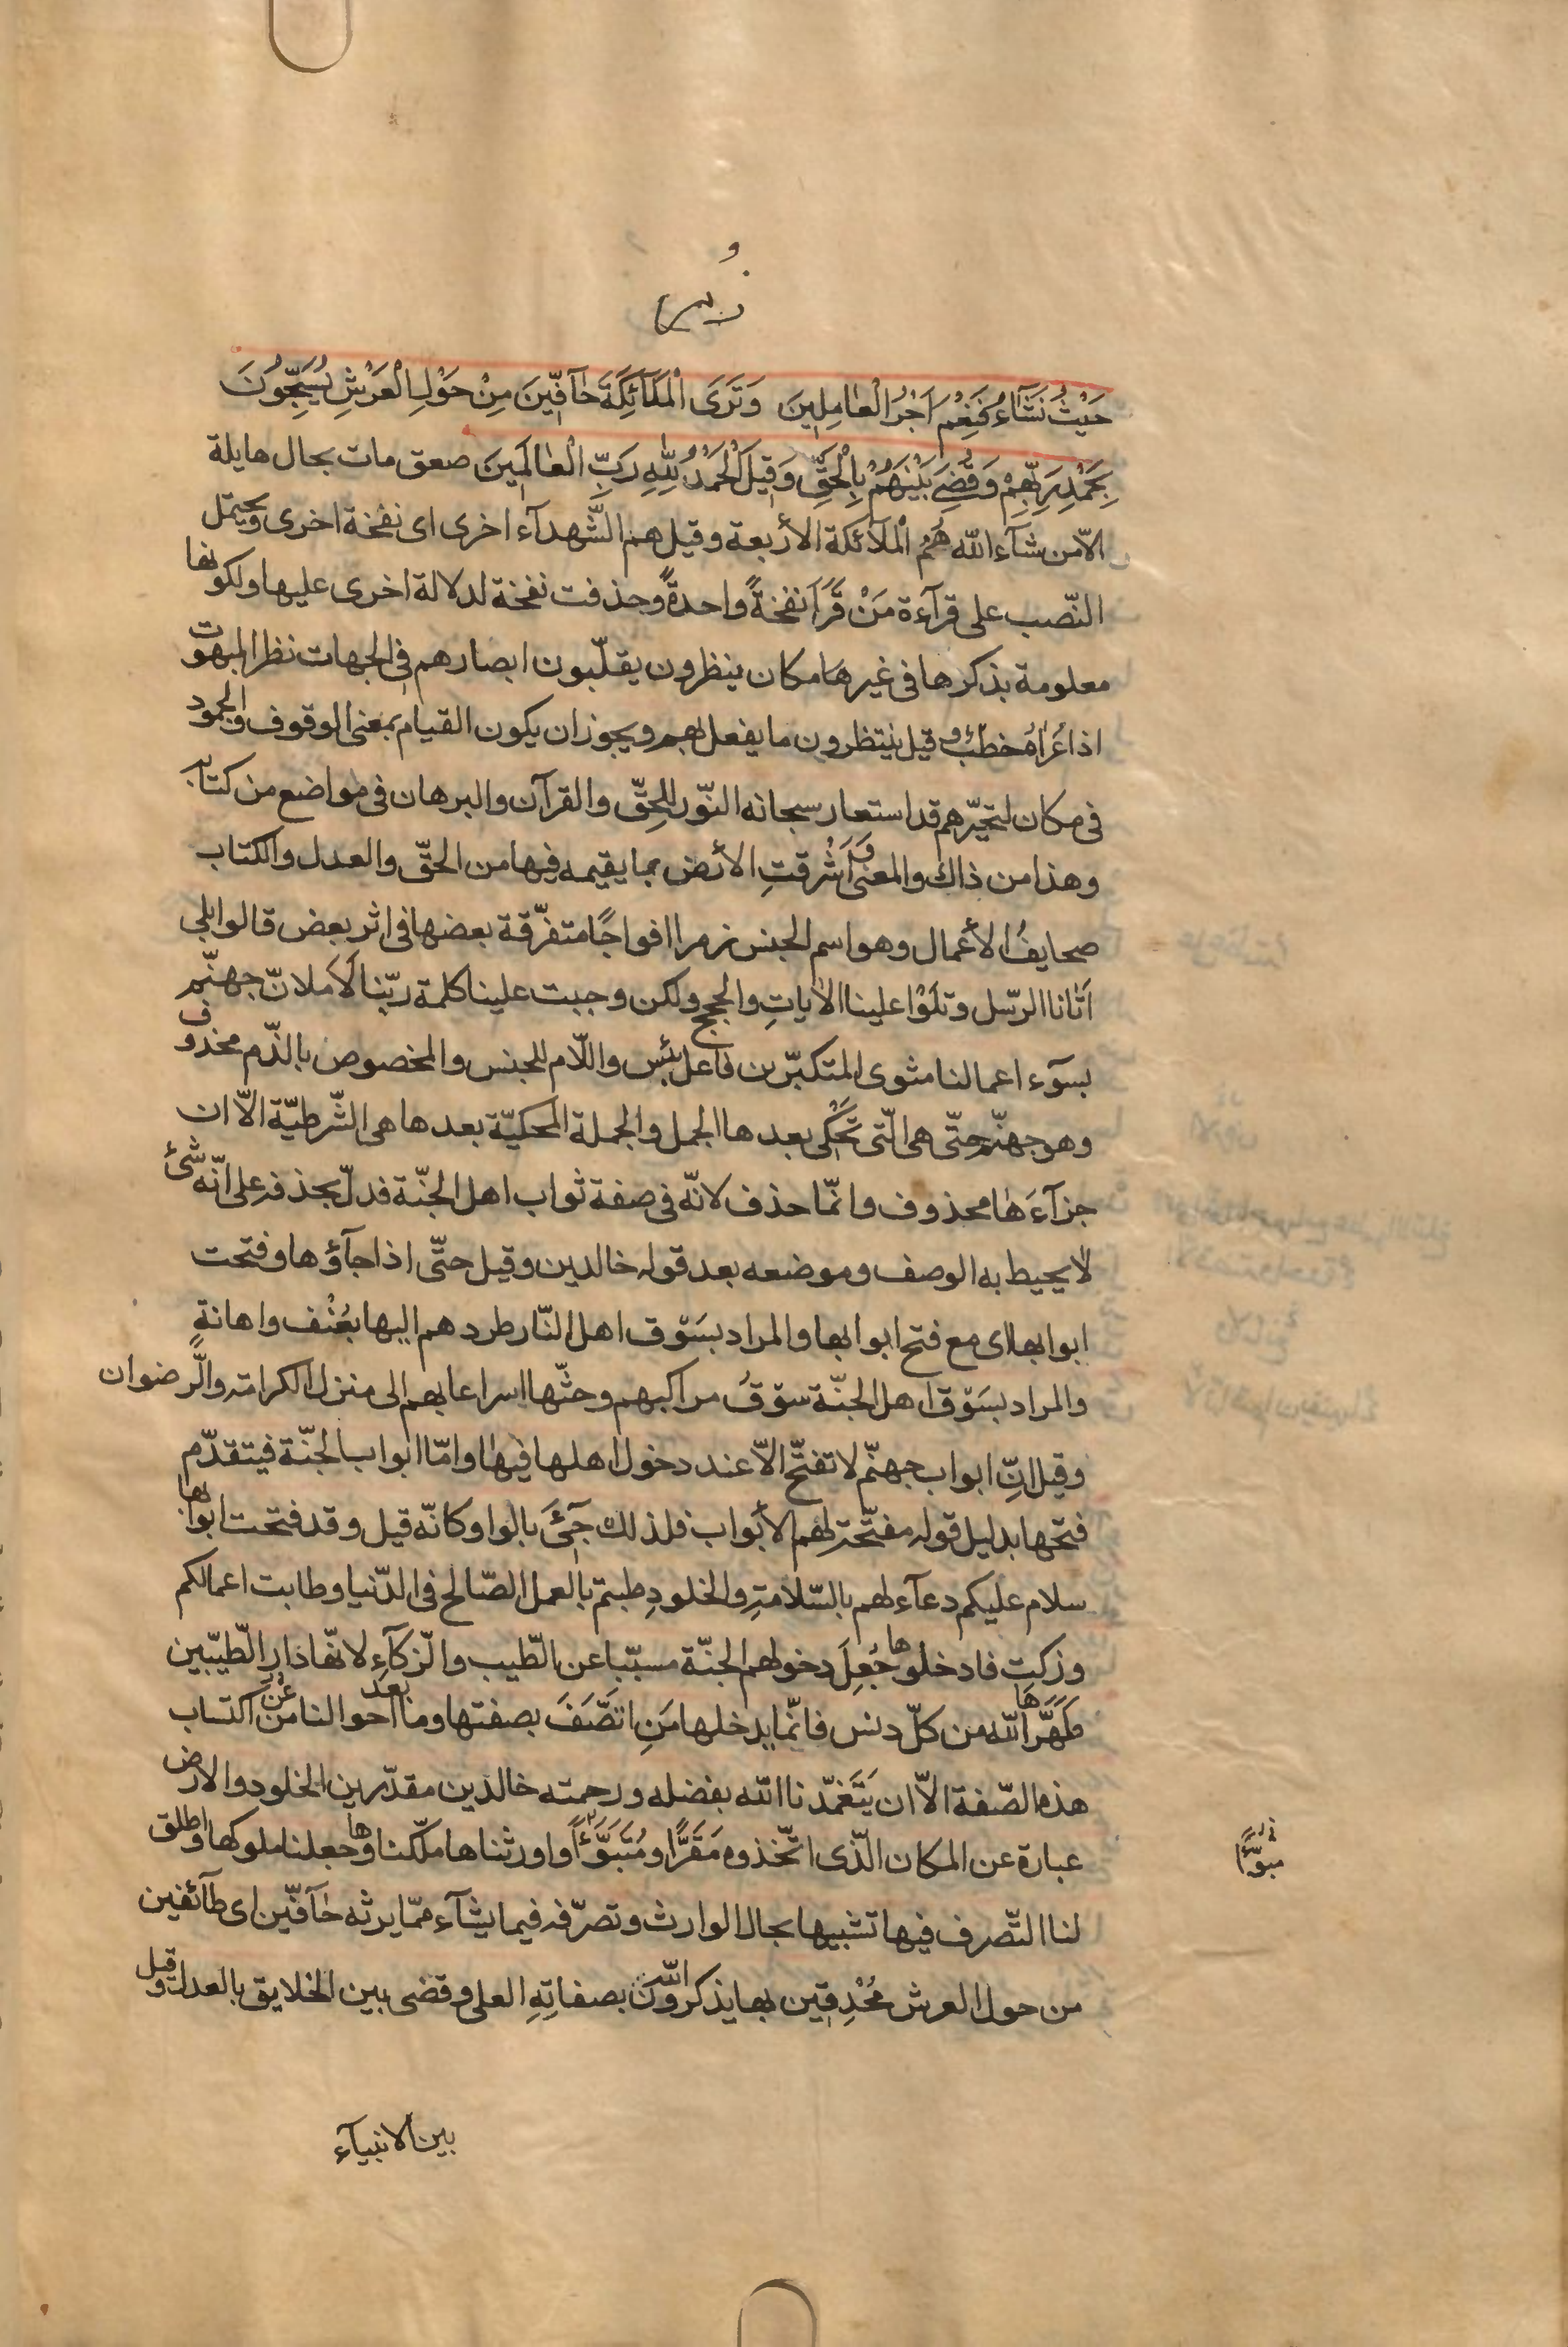 و
زمر
حَيْثُ نَشَآءُ فَنِعْمَ اَجْرُ الْعٰامِلِينَ وَتَرَى الْمَلَآئِكَةَ حٰآفِّينَ مِنْ حَوْلِ الْعَرْشِ يُسَبِّحُونَ
بِحَمْدِ رَبِّهِمْ وَقُضِىَ بَيْنَهُمْ بِالْحَقِّ وَقِيلَ الْحَمْدُ لِلّٰهِ رَبِّ الْعٰالَمِينَ صعق مات بحال هايلة
الّا من شآء اللّه هُمُ الْمَلآئكة الأربعة وقيل هم الشّهدآء اخرى اى نفخة اخرى ويحتمل
النّصب على قرآءة مَنْ قَرَاَ نفخةً واحدةً وحذفت نفخة لدلالة اخرى عليها ولكونها
معلومة بذكرها فى غير هَا مكان ينظرون يقلّبون ابصارهم فى الجهات نظر المبهوت
اذا عُرٰاهُ خطبٌ وقيل ينتظرون ما يفعل بهم ويجوز ان يكون القيام بمعنى الوقوف والجمود
فى مكان لتحيّرهم قد استعار سبحانه النّور للحقّ والقرآن والبرهان فى مواضع من كتابه
وهذا من ذاك والمعنى وَاَشْرقتِ الأرض بما يقيمه فيها من الحقّ والعدل والكتاب
صحايفُ الأعمال وهو اسم الجنس زمرا افواجًا متفرّقة بعضها فى اثر بعض قالوا بلى
اَتٰانا الرّسل وتلَوْا علينا الاٰياتِ والحجج ولكن وجبت علينا كلمة ربّنا لَاَملانّ جهنّم
بسوٓء اعمالنا مثوى المتكبّرين فاعل بئس واللّام للجنس والمخصوص بالذّم محذوف
وهو جهنّم حتّى هى الّتى تُحْكى بعدها الجمل والجملة المحكيّة بعدها هى الشّرطيّة الّا ان
جزآءَهٰا محذوف وانّما حذف لانّه فى صفة ثواب اهل الجنّة فدلّ بحذفه على انّه شئ
لا يحيط به الوصف وموضعه بعد قوله خالدين وقيل حتّى اذا جآؤها وفتحت
ابوابها اى مع فتح ابوابها والمراد بسَوْق اهل النّار طردهم اليها بعُنْف واهانةٍ
والمراد بسَوْق اهل الجنّة سوْقُ مراكبهم وحثّها اسراعا بهم الى منزل الكرامة والرّضوان
وقيل انّ ابواب جهنّم لا تفتّح الّا عند دخول اهلها فيها وامّا ابواب الجنّة فيتقدّم
فتحها بدليل قوله مفتّحة لهم الأبواب فلذلك جِئَ بالواو كانّه قيل وقد فتحت ابوابها
سلام عليكم دعآء لهم بالسّلامةِ والخلودِ طبتم بالعمل الصّالح فى الدّنيا وطابت اعمالكم
وزكت فادخلوها جُعِلَ دخولهم الجنّة مسبّبا عن الطّيب والزّكآءِ لانّها دار الطّيّبين
طَهَّرَهَا اللّه من كلّ دنس فانّما يدخلها مَنِ اتّصَفَ بصفتها وما ابعد احوالنا من اكتساب
هذه الصّفة الّا ان يَتَغمّدنا اللّه بفضله ورحمته خالدين مقدّرين الخلود والارض
عبارة عن المكان الّذى اتّخذوه مَقَرًّا ومُتَبَوَّءًا واورثناها ملّكناها وجعلنا ملوكها واطلق
لنا التّصرف فيها تشبيها بحال الوارث وتصرّفه فيما يشآء ممّا يرثه حٰآفّين اى طآئفين
من حول العرش مُحْدِقين بها يذكرون اللّه بصفاتِهِ العلى وقضى بين الخلايق بالعدل وقيل
مبوّءًا
بين الانبيآء